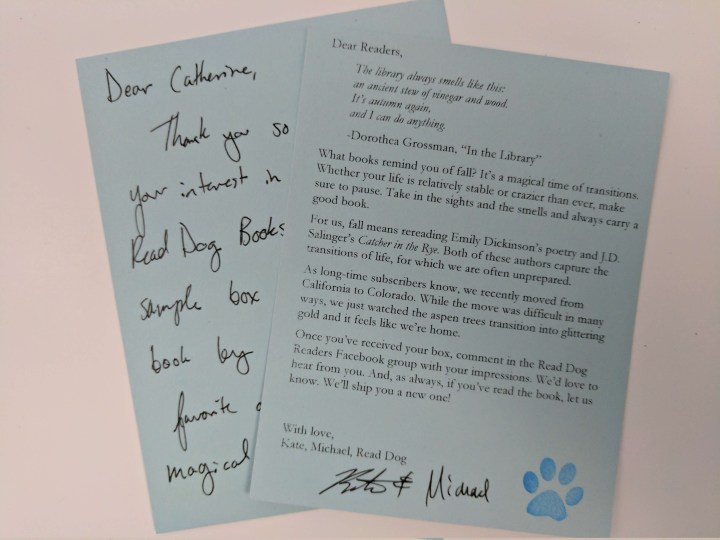 Dear Catherine,
Thank you so
your interest in
Read Dog Books
sample box
book by
favorite
magical
Dear Readers,
The library always smells like this:
an ancient stew of vinegar and wood.
It's autumn again,
and I can do anything.
-Dorothea Grossman, "In the Library"
What books remind you of fall? It's a magical time of transitions.
Whether your life is relatively stable or crazier than ever, make
sure to pause. Take in the sights and the smells and always carry a
good book.
For us, fall means rereading Emily Dickinson's poetry and J.D.
Salinger's Catcher in the Rye. Both of these authors capture the
transitions of life, for which we are often unprepared.
As long-time subscribers know, we recently moved from
California to Colorado. While the move was difficult in many
ways, we just watched the aspen trees transition into glittering
gold and it feels like we're home.
Once you've received your box, comment in the Read Dog
Readers Facebook group with your impressions. We'd love to
hear from you. And, as always, if you've read the book, let us
know. We'll ship you a new one!
With love,
Kate, Michael, Read Dog
Kate & Michael